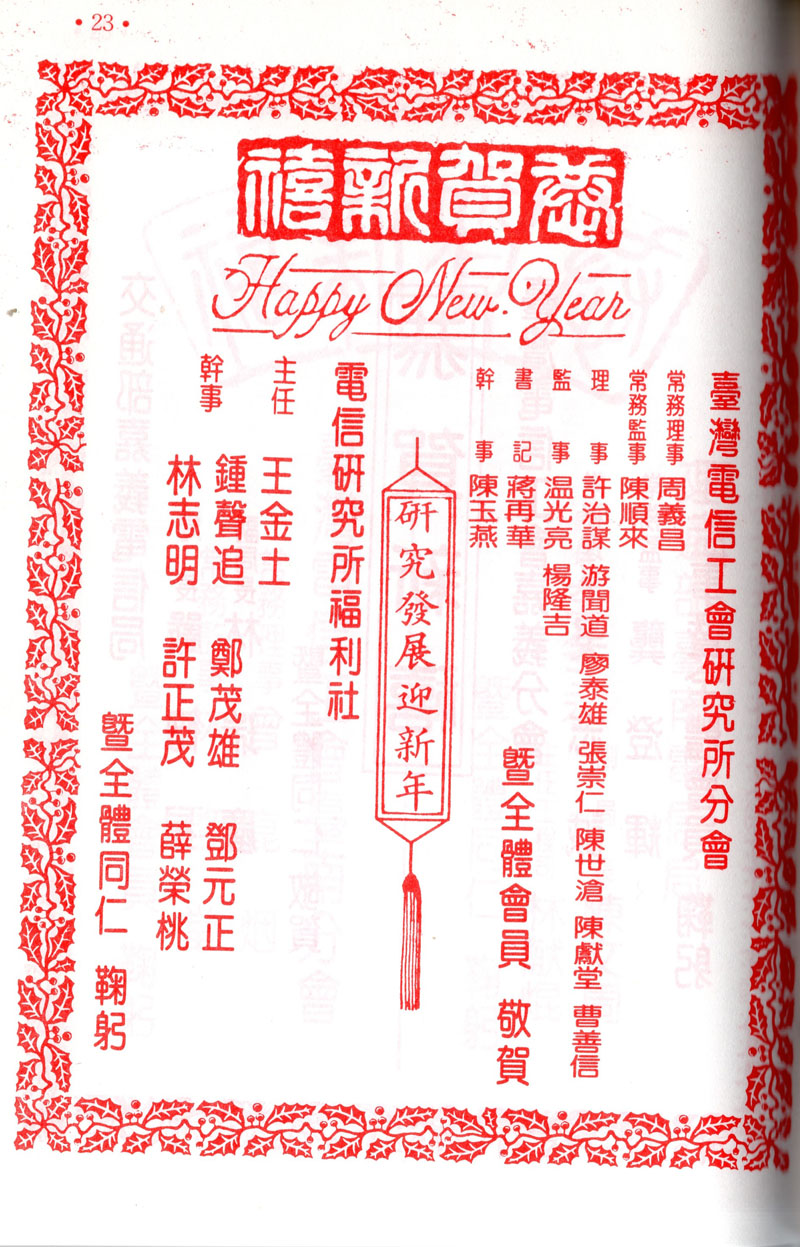 •23•
恭賀新禧
Happy New Year
臺灣電信工會研究所分會
常務理事 周義昌
常務監事 陳順來
理事 許治謀 游聞道 廖泰雄 張崇仁 陳世滄 陳獻堂 曹善信
監事 温光亮 楊隆吉
書記 蔣再華
幹事 陳玉燕
暨全體會員 敬賀
研究發展迎新年
電信研究所福利社
主任 王金土
幹事 鍾聲追 鄭茂雄 鄧元正
林志明 許正茂 薛榮桃
暨全體同仁 鞠躬